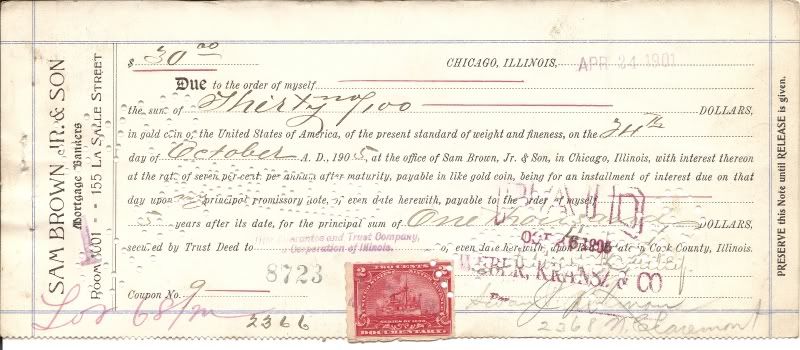 SAM BROWN, JR. & SON
Mortgage Bankers
ROOM 1001 - - 155 LA SALLE STREET
$ 30 00
CHICAGO, ILLINOIS, APR 24 1901
Due to the order of myself
the sum of Thirty no/100 DOLLARS,
in gold coin of the United States of America, of the present standard of weight and fineness, on the 24th
day of October A. D., 1905, at the office of Sam Brown, Jr. & Son, in Chicago, Illinois, with interest thereon
at the rate of seven per cent. per annum after maturity, payable in like gold coin, being for an installment of interest due on that
day upon my principal promissory note, of even date herewith, payable to the order of myself
PAID
5 years after its date, for the principal sum of One thousand DOLLARS,
secured by Trust Deed to Guarantee and Trust Company, of even date herewith, upon Real Estate in Cook County, Illinois.
Corporation of Illinois.
8723
WEBER, KRANSZ & CO
Coupon No. 9
TWO CENTS
2 2
DOCUMENTARY
2366
2368 N. Claremont
PRESERVE this Note until RELEASE is given.